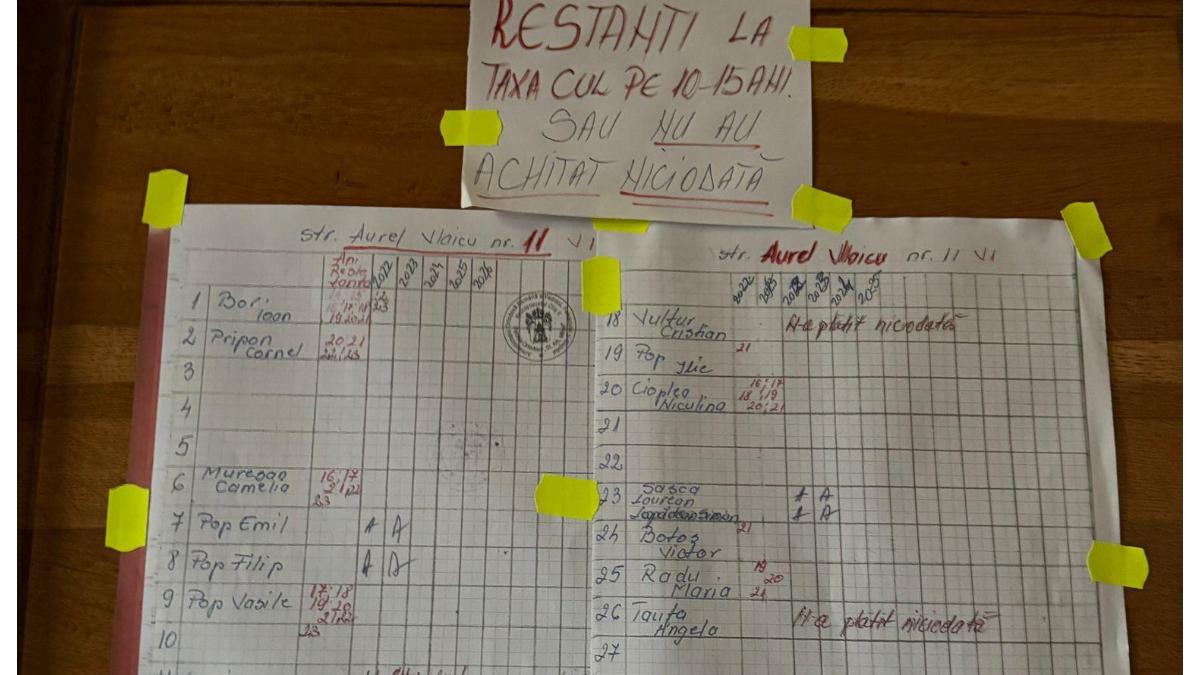 RESTANȚI LA
TAXA CUL PE 10-15 ANI.
SAU NU AU
ACHITAT NICIODATĂ
str. Aurel Vlaicu nr. 11 VI
Ani
2022 2023 2024 2025 2026
1 Bori
Ioan
16, 17, 18
19 20 21
22
23
2 Pripon
Cornel
20, 21
22, 23
3
4
5
6 Mureșan
Camelia
16, 17
21, 22
23
7 Pop Emil A A
8 Pop Filip A A
9 Pop Vasile
17, 18
19, 20
21, 22
23
10
str. Aurel Vlaicu nr. 11 VI
2022 2023 2024 2025
18 Vultur
Cristian
N-a platit niciodată
19 Pop
Ilie
21
20 Cioplea
Niculina
16, 17
18, 19
20, 21
21
22
23 Sasca
Laurean
A A
A A
24 Botoș
Victor
21
25 Radu
Maria
19
20
21
26 Tauta
Angela
N-a platit niciodată
27